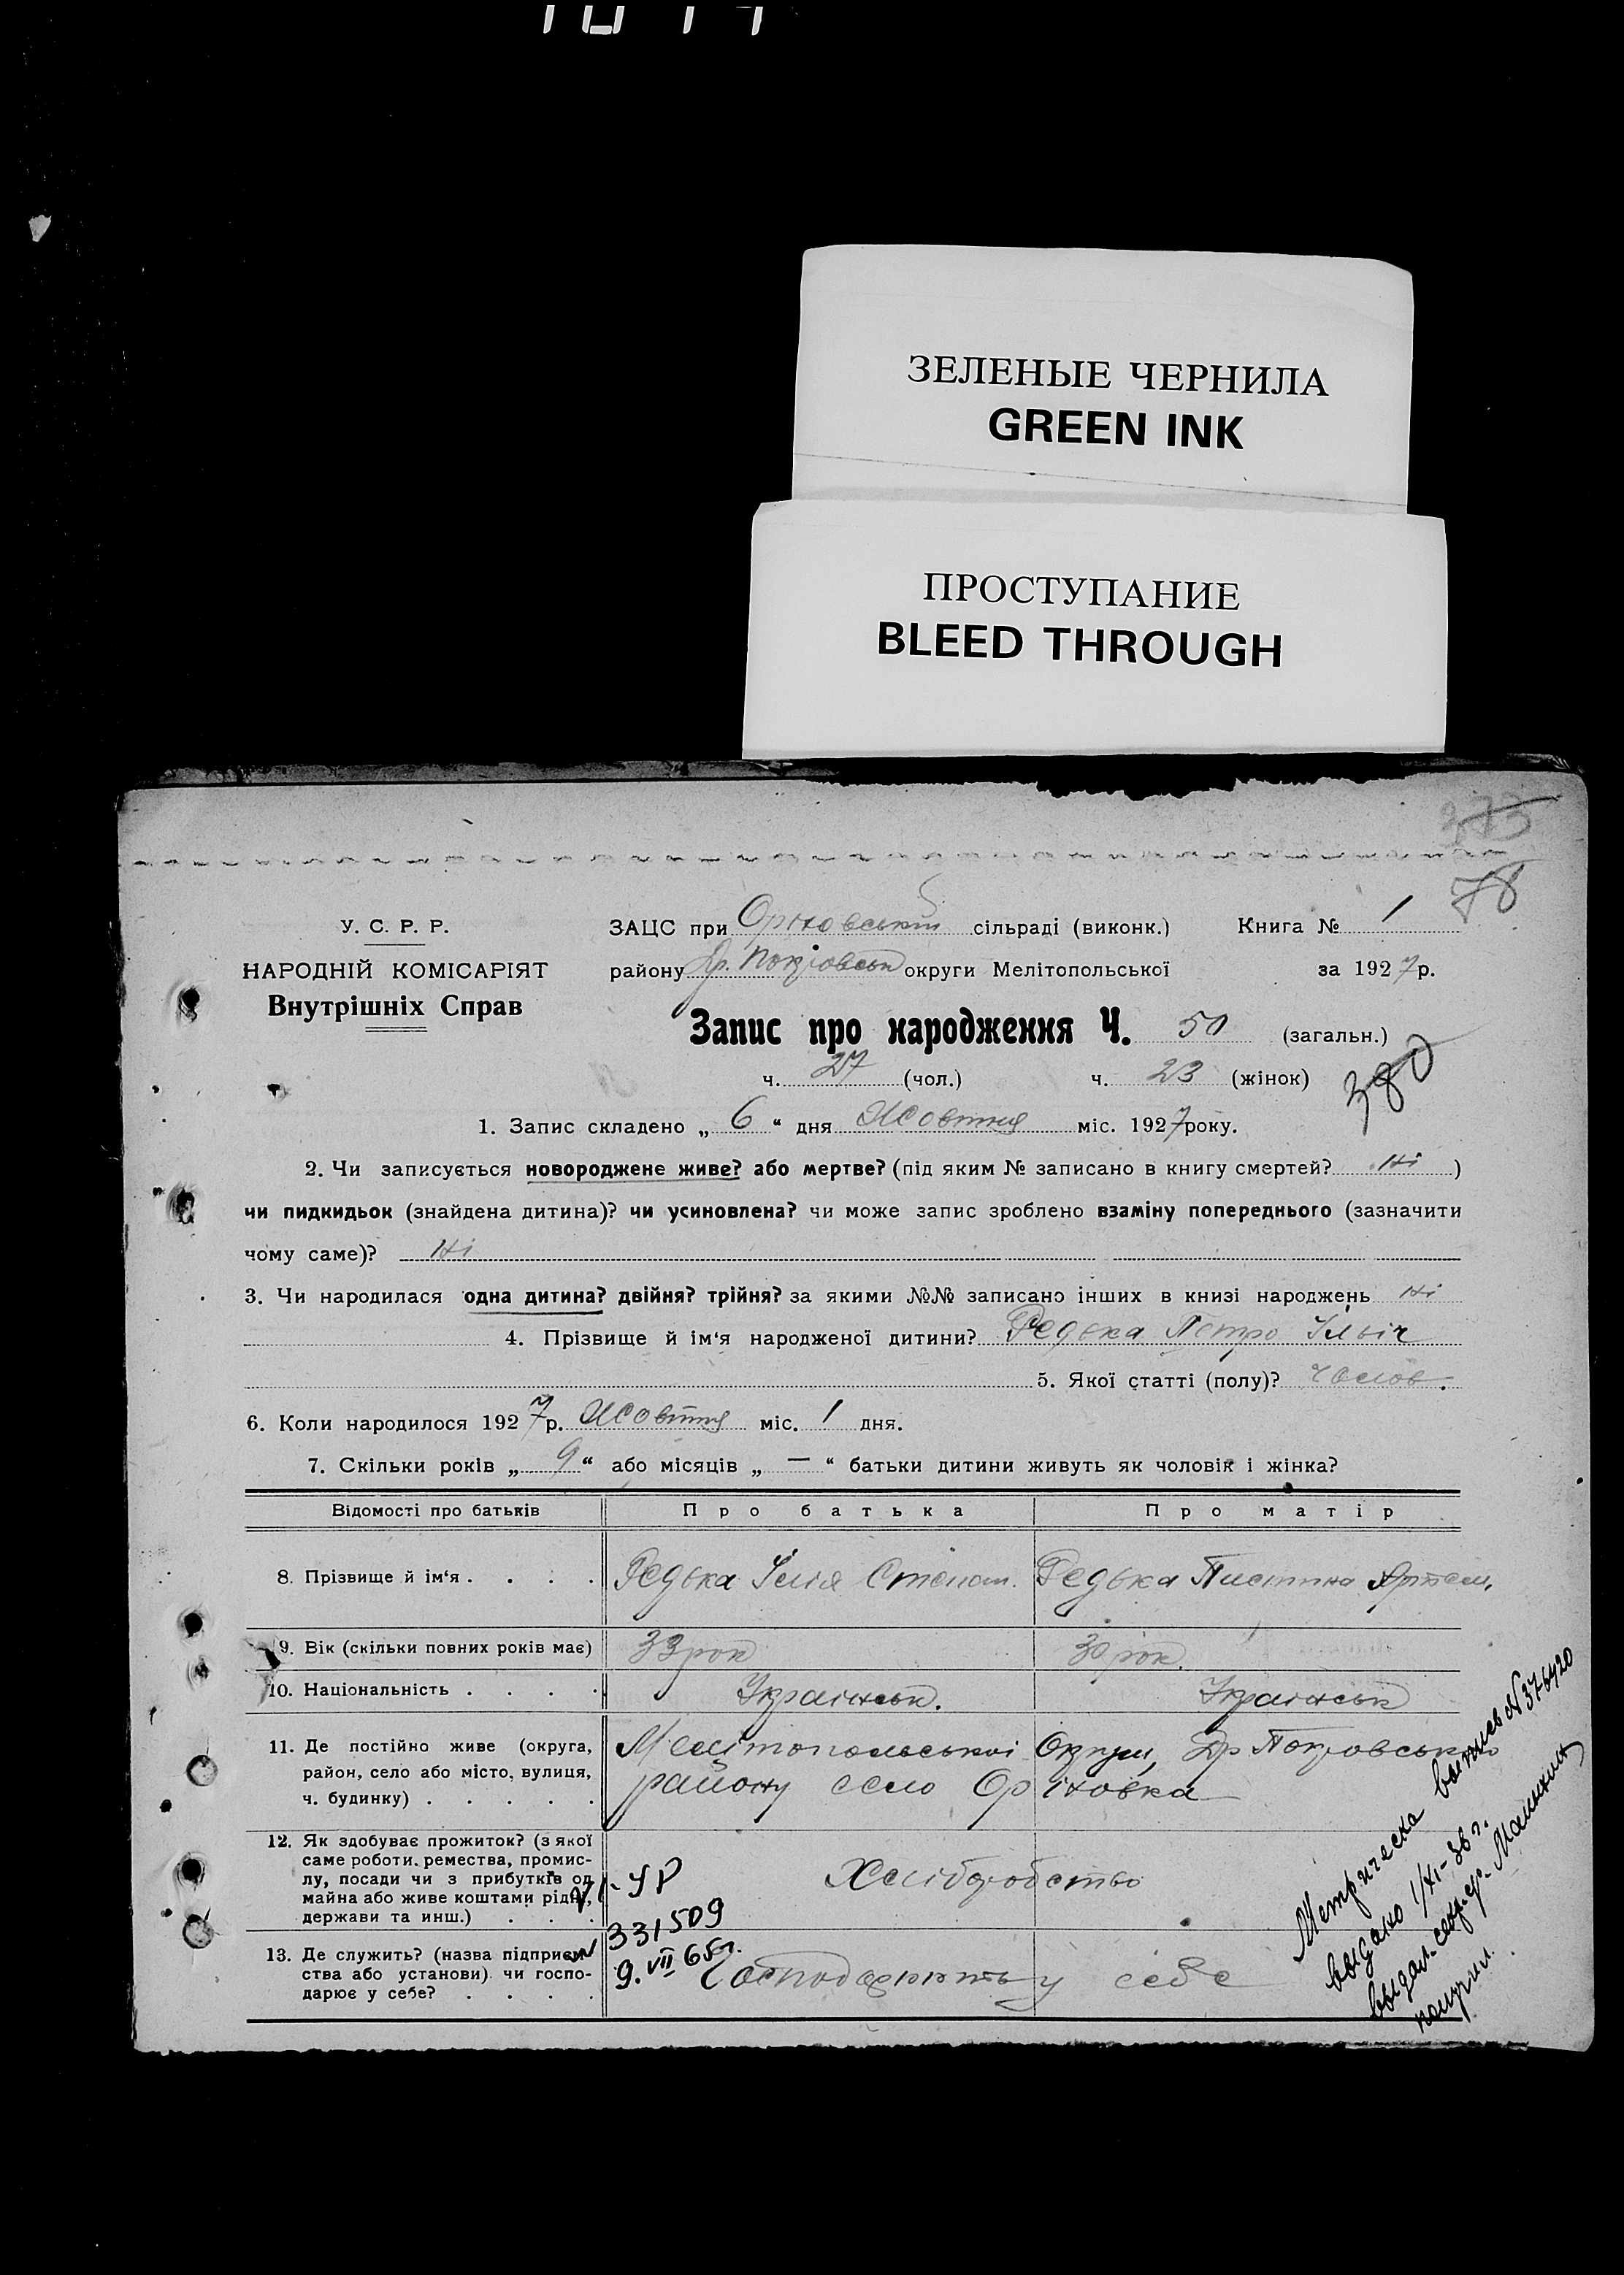 ЗЕЛЕНЫЕ ЧЕРНИЛА
GREEN INK
ПРОСТУПАНИЕ
BLEED THROUGH
273
78
У. С. Р. Р.
НАРОДНІЙ КОМІСАРІЯТ
Внутрішніх Справ
ЗАЦС при Оріховській сільраді (виконк.) Книга № 1
району Др. Покровськ округи Мелітопольської за 1927р.
Запис про народження Ч. 50 (загальн.)
380
ч. 27 (чол.) ч. 23 (жінок)
1. Запис складено „ 6 “ дня Жовтня міс. 1927року.
2. Чи записується новороджене живе? або мертве? (під яким № записано в книгу смертей? Ні )
чи пидкидьок (знайдена дитина)? чи усиновлена? чи може запис зроблено взаміну попереднього (зазначити
чому саме)? Ні
3. Чи народилася одна дитина? двійня? трійня? за якими №№ записано інших в книзі народжень Ні
4. Прізвище й ім‘я народженої дитини? Редька Петро Ільіч
5. Якої статті (полу)? Чолов.
6. Коли народилося 1927р. Жовтня міс. 1 дня.
7. Скільки років „ 9 “ або місяців „ — “ батьки дитини живуть як чоловік і жінка?
Відомості про батьків Про батька Про матір
8. Прізвище й ім‘я . . . . Редька Ілія Степан. Редька Пистина Артем.
9. Вік (скільки повних років має) 33 рок 30 рок.
10. Національність . . . . Українськ. Українськ
11. Де постійно живе (округа,
район, село або місто, вулиця,
ч. будинку) . . . . .
Мелітопольської Округи, Др Покровсько
району село Оріховка
12. Як здобуває прожиток? (з якої
саме роботи, ремества, промис-
лу, посади чи з прибутків од
майна або живе коштами рідні,
держави та инш.) . . .
Хліборобство
13. Де служить? (назва підприєм-
ства або установи) чи госпо-
дарює у себе? . . . .
Господарюють у себе
УР
331509
9.VII 65г.
Метрическа выпись № 376420
выдано 1/XI-36 г.
выдал-секр.